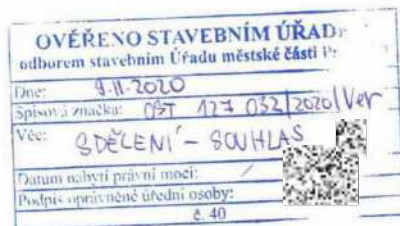 OVĚŘENO STAVEBNÍM ÚŘAD
odborem stavebním Úřadu městské části
Dne: 9.11.2020
Spisová značka: OST 127 032/2020/Ver
Věc: SDĚLENÍ - SOUHLAS
Datum nabytí právní moci:
Podpis oprávněné úřední osoby:
č. 40